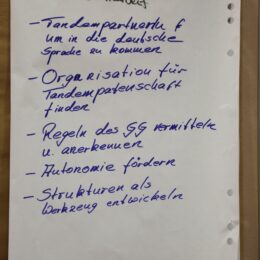 - Tandempartner/in f
um in die deutsche
Sprache zu kommen
- Organisation für
Tandempatenschaft
finden
- Regeln des GG vermitteln
u. anerkennen
- Autonomie fördern
- Strukturen als
Werkzeug entwickeln